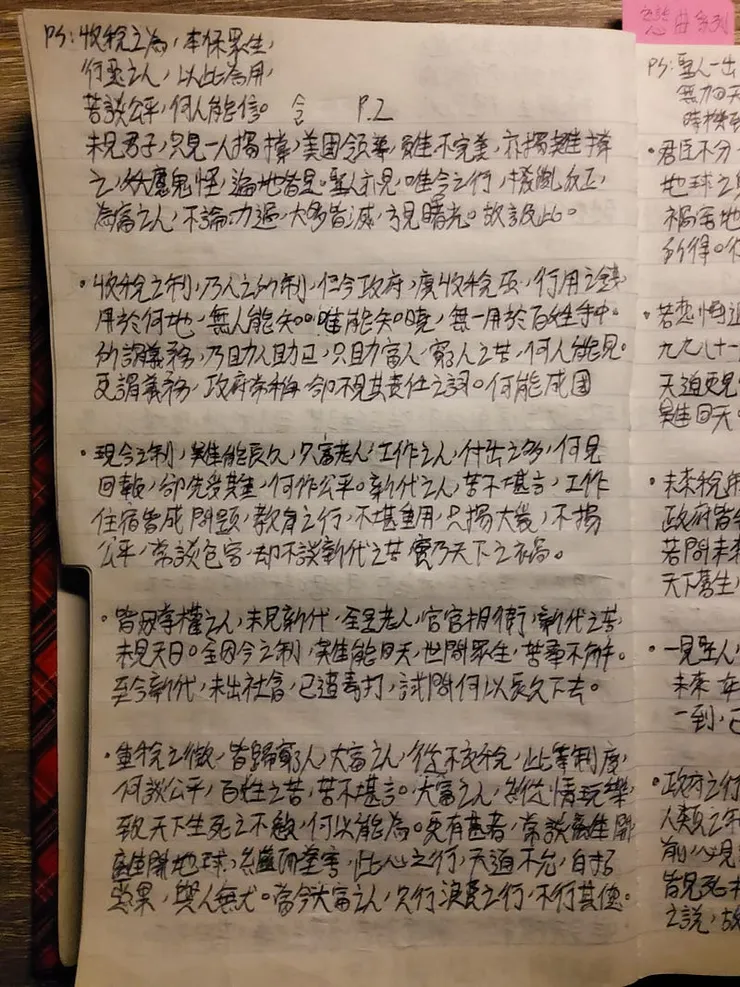 PS:收稅之為,本保眾生,
何惡之人,以此為用,
苦談公平,何人能信。 令 P.2
未見君子,只見一人獨撐,美國領導,雖不完美,亦獨難撐
之,妖魔鬼怪,遍地皆是。聖人亦見,唯令之行,撥亂反正,
為富之人,不論功過,大多皆滅,方見曙光。故說此。
・收稅之制,乃人之所制,但今政府,度收稅反,何用之錢
用於何地,無人能知。唯能知曉,無一用於百姓手中。
所謂義務,乃助人助己,只助富人,窮人之苦,何人能見。
更謂義務,政府常稱,卻不見其責任之詞。何能成國
・現今之制,難能長久,只富老人,工作之人,付出之多,何見
回報,卻先受難,何作公平。新代之人,苦不堪言,工作
住宿皆成問題,教育之行,不堪重用,只揚大義,不揚
公平,常談包容,卻不談新代之苦,實乃天下之禍。
・皆因掌權之人,未見新代,全是老人,官官相衛,新代之苦
未見天日。全因今之制,難能回天,世間眾生,苦牽不斷。
至今新代,未出社會,已遭毒打,試問何以長久下去。
・重稅之徵,皆歸窮人,大富之人,從不交稅,此等制度,
何談公平,百姓之苦,苦不堪言。大富之人,縱情玩樂,
致天下生死之不顧,何以能為。更有甚者,常談離開
離開地球,此心之行,天道不允,自招
惡果,與人無尤。當今大富之人,只行浪費之行,不行其德。
戀曲系列
PS:聖人一出
無力回天
・君臣不分
地球之
禍害地
所得。
・若想悟道
九九八十一
天道更見
難回天。
・未來稅
政府皆
若問未來
天下蒼生,
・一見聖人,
未來
一到,已
・政府之行
人類之
前,必見
皆見死
之說,故